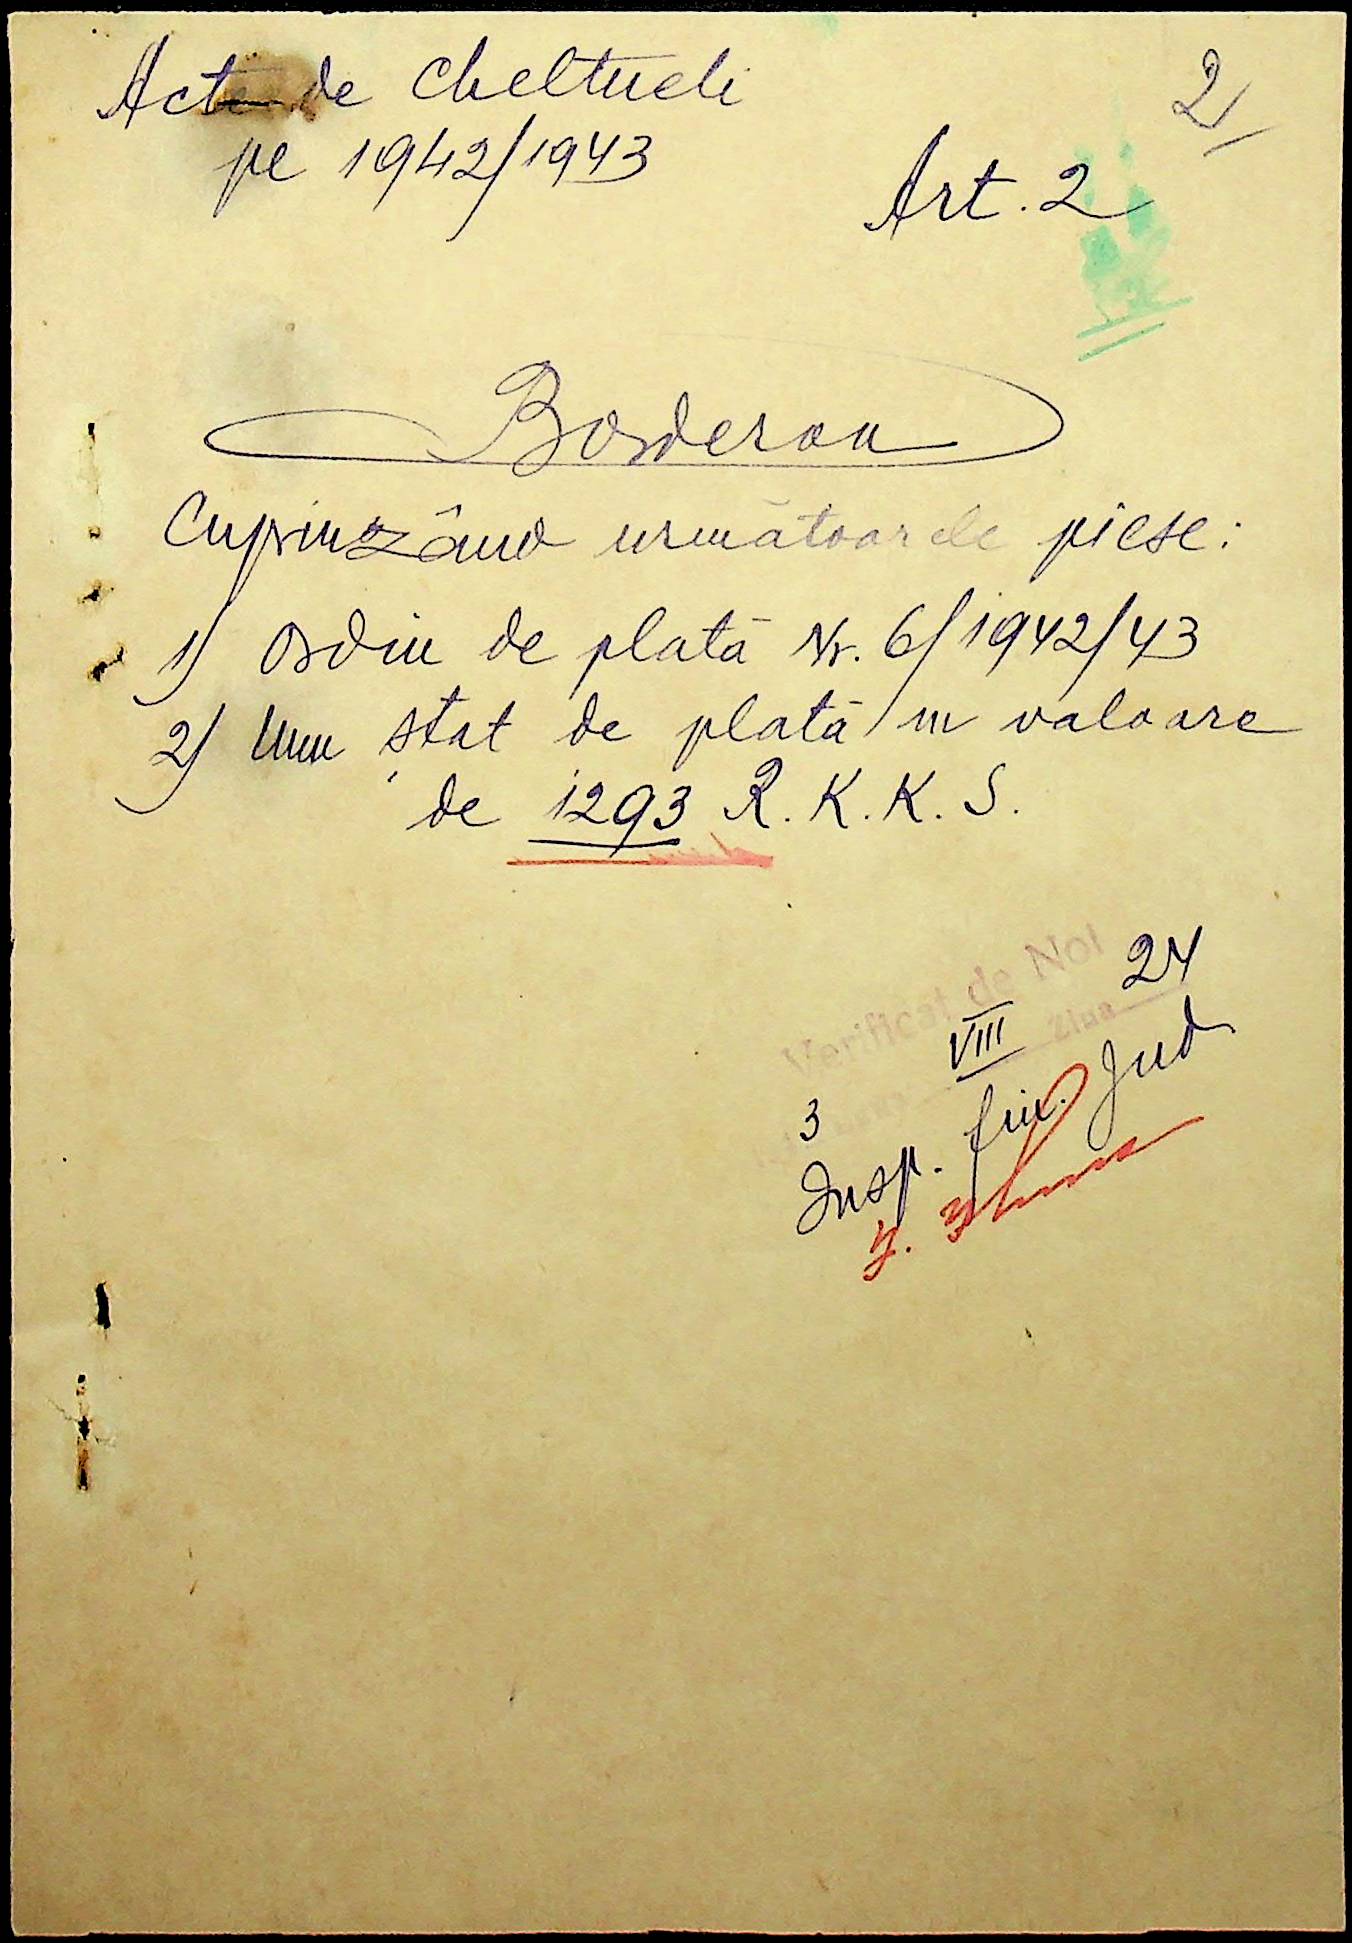 Acte de cheltueli
2
pe 1942/1943
Art. 2
Borderou
Cuprinzând următoarele piese:
1) Ordin de plată Nr. 6/1942/43
2) Unu ștat de plată în valoare
de 1293 R. K. K. S.
Verificat de Noi
VIII Ziua 24
3
Insp. fin. Jud